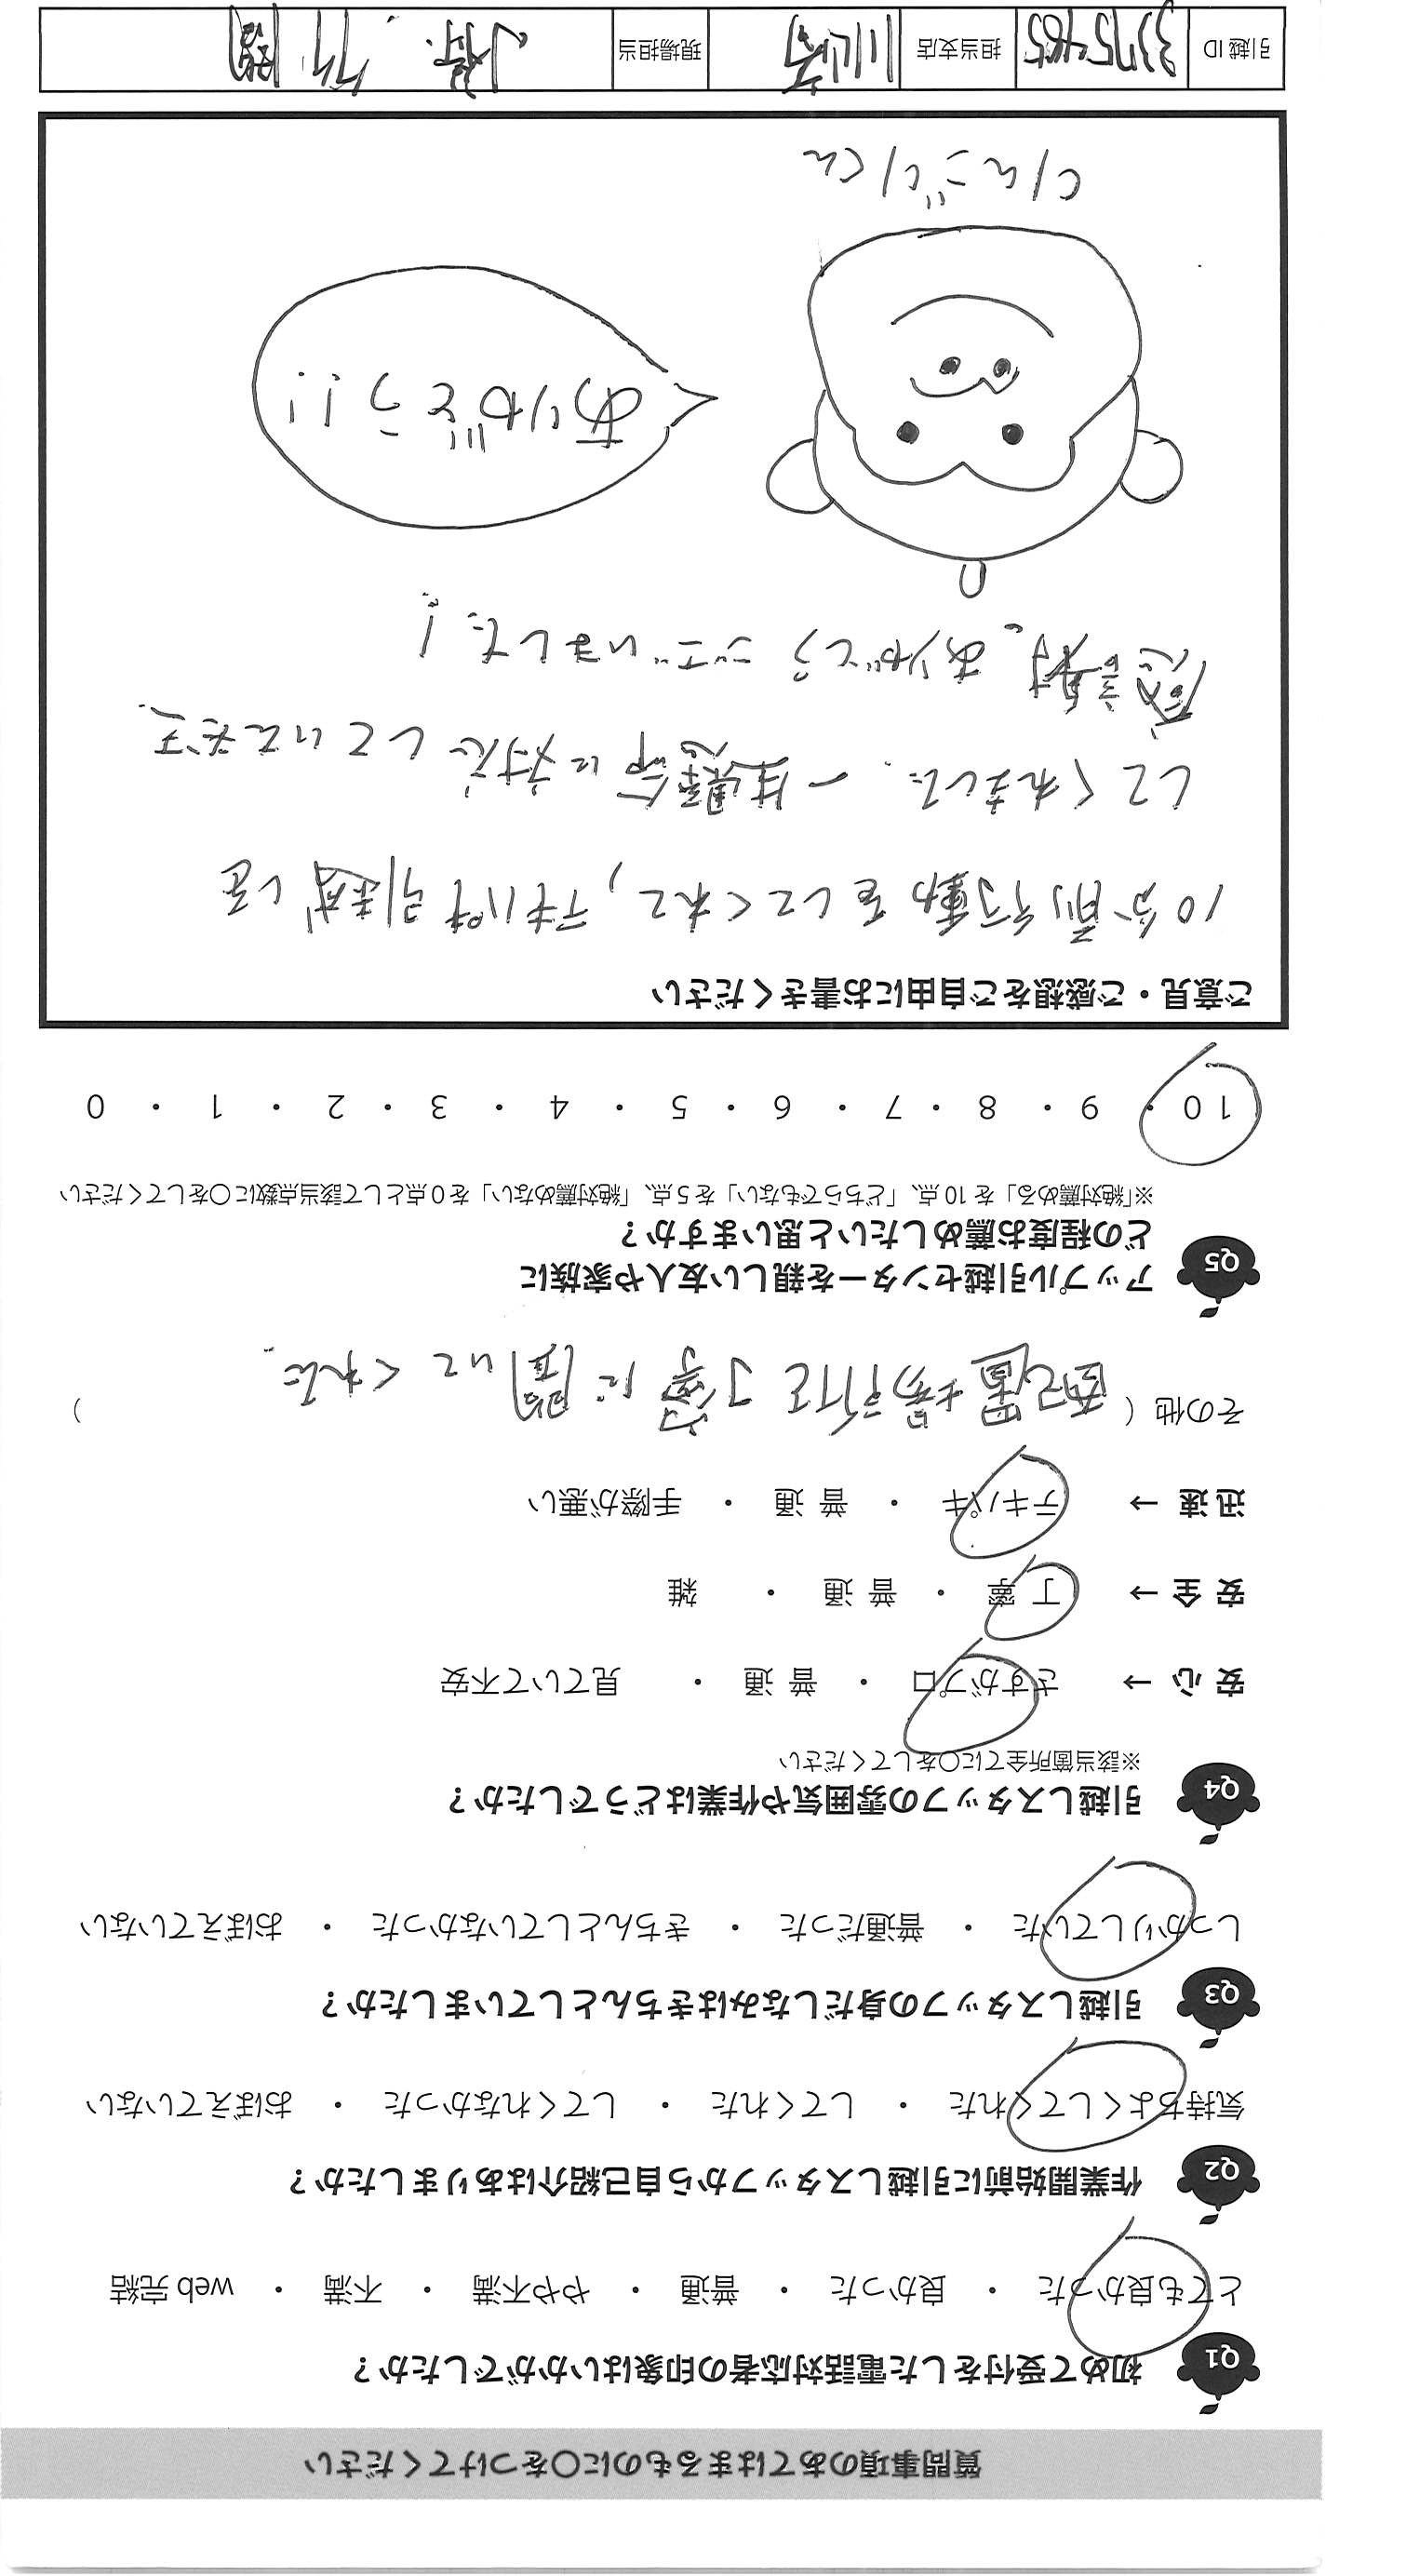 質問事項のあてはまるものに○をつけてください
Q1 初めて受付をした電話対応者の印象はいかがでしたか？
とても良かった ・ 良かった ・ 普通 ・ やや不満 ・ 不満 ・ web 完結
Q2 作業開始前に引越しスタッフから自己紹介はありましたか？
気持ちよくしてくれた ・ してくれた ・ してくれなかった ・ おぼえていない
Q3 引越しスタッフの身だしなみはきちんとしていましたか？
しっかりしていた ・ 普通だった ・ きちんとしていなかった ・ おぼえていない
Q4 引越しスタッフの雰囲気や作業はどうでしたか？
※該当箇所全てに○をしてください
安 心 → さすがプロ ・ 普 通 ・ 見ていて不安
安 全 → 丁 寧 ・ 普 通 ・ 雑
迅 速 → テキパキ ・ 普 通 ・ 手際が悪い
その他（配置場所て丁寧に聞いてくれた。）
Q5 アップル引越センターを親しい友人や家族に
どの程度お薦めしたいと思いますか？
※「絶対薦める」を 10 点、「どちらでもない」を 5 点、「絶対薦めない」を 0 点として該当点数に○をしてください
10 ・ 9 ・ 8 ・ 7 ・ 6 ・ 5 ・ 4 ・ 3 ・ 2 ・ 1 ・ 0
ご意見・ご感想をご自由にお書きください
10分前行動をしてくれて、テキパキ引越しを
してくれました。一生懸命に対応していただき
感謝。ありがとうございました！
ありがとう!!
りんごりくん
引越 ID 3375465 担当支店 川崎 現場担当